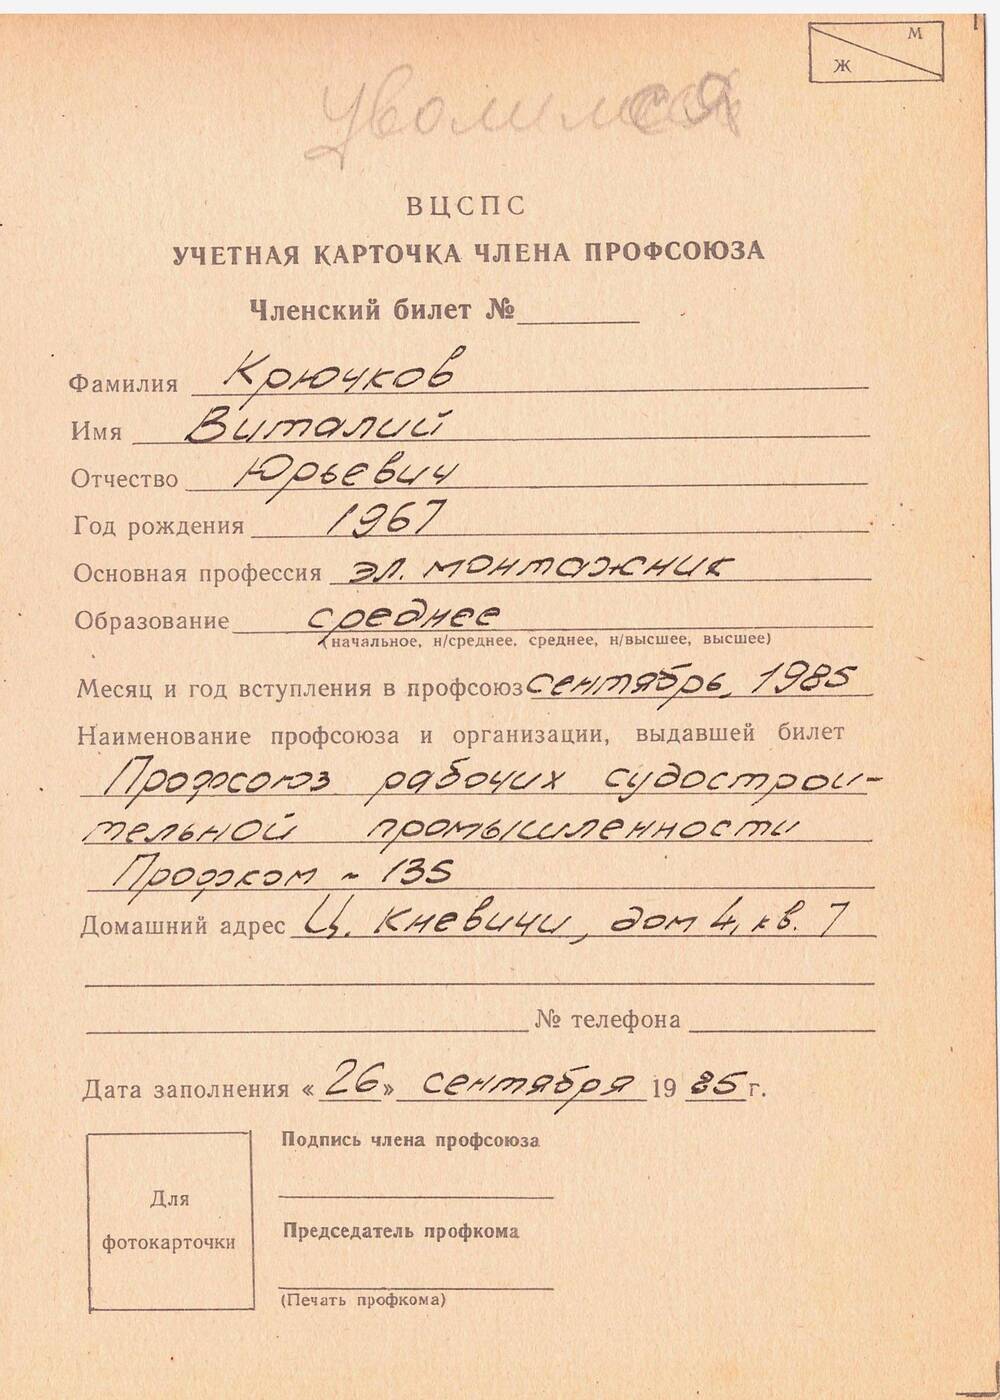 М
Ж
уволился
ВЦСПС
УЧЕТНАЯ КАРТОЧКА ЧЛЕНА ПРОФСОЮЗА
Членский билет №
Фамилия Крючков
Имя Виталий
Отчество Юрьевич
Год рождения 1967
Основная профессия эл. монтажник
Образование среднее
(начальное, н/среднее, среднее, н/высшее, высшее)
Месяц и год вступления в профсоюз сентябрь, 1985
Наименование профсоюза и организации, выдавшей билет
Профсоюз рабочих судострои-
тельной промышленности
Профком ~ 135
Домашний адрес Ц. Кневичи, дом 4, кв. 7
№ телефона
Дата заполнения « 26 » сентября 19 85 г.
Подпись члена профсоюза
Для
фотокарточки
Председатель профкома
(Печать профкома)